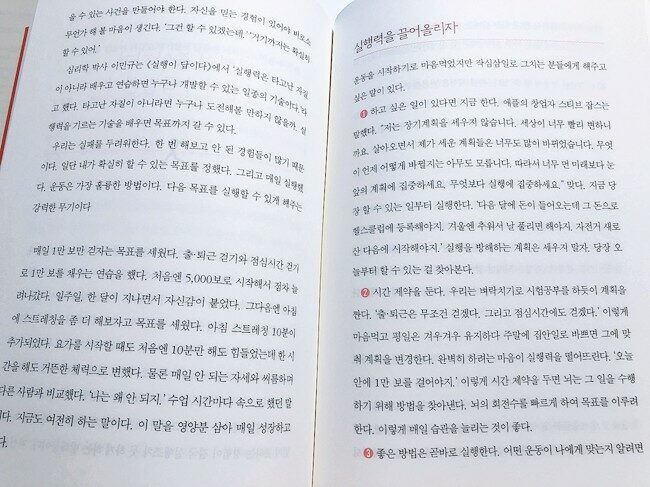 을 수 있는 사건을 만들어야 한다. 자신을 믿는 경험이 있어야 비로소
무언가 해 볼 마음이 생긴다. '그건 할 수 있겠는데.' '거기까지는 확실히
할 수 있어.'
심리학 박사 이민규는 《실행이 답이다》에서 '실행력은 타고난 자질
이 아니라 배우고 연습하면 누구나 개발할 수 있는 일종의 기술이다.'라
고 했다. 타고난 자질이 아니라면 누구나 도전해볼 만하지 않을까. 실
행력을 기르는 기술을 배우면 목표까지 갈 수 있다.
우리는 실패를 두려워한다. 한 번 해보고 안 된 경험들이 많기 때문
이다. 일단 내가 확실히 할 수 있는 목표를 정했다. 그리고 매일 실행했
다. 운동은 가장 훌륭한 방법이다. 다음 목표를 실행할 수 있게 해주는
강력한 무기이다
매일 1만 보만 걷자는 목표를 세웠다. 출·퇴근 걷기와 점심시간 걷기
로 1만 보를 채우는 연습을 했다. 처음엔 5,000보로 시작해서 점차 늘
려나갔다. 일주일, 한 달이 지나면서 자신감이 붙었다. 그다음엔 아침
에 스트레칭을 좀 더 해보자고 목표를 세웠다. 아침 스트레칭 10분이
추가되었다. 요가를 시작할 때도 처음엔 10분만 해도 힘들었는데 한 시
간을 해도 거뜬한 체력으로 변했다. 물론 매일 안 되는 자세와 씨름하며
다른 사람과 비교했다. '나는 왜 안 되지.' 수업 시간마다 속으로 했던 말
다. 지금도 여전히 하는 말이다. 이 말을 영양분 삼아 매일 성장하고
다.
실행력을 끌어올리자
운동을 시작하기로 마음먹었지만 작심삼일로 그치는 분들에게 해주고
싶은 말이 있다.
❶ 하고 싶은 일이 있다면 지금 한다. 애플의 창업자 스티브 잡스는
말했다. "저는 장기계획을 세우지 않습니다. 세상이 너무 빨리 변하니
까요. 살아오면서 제가 세운 계획들은 너무도 많이 바뀌었습니다. 무엇
이 언제 어떻게 바뀔지는 아무도 모릅니다. 따라서 너무 먼 미래보다 눈
앞의 계획에 집중하세요. 무엇보다 실행에 집중하세요." 맞다. 지금 당
장 할 수 있는 일부터 실행한다. '다음 달에 돈이 들어오는데 그 돈으로
헬스클럽에 등록해야지. 겨울엔 추워서 날 풀리면 해야지. 자전거 새로
산 다음에 시작해야지.' 실행을 방해하는 계획은 세우지 말자. 당장 오
늘부터 할 수 있는 걸 찾아본다.
❷ 시간 제약을 둔다. 우리는 벼락치기로 시험공부를 하듯이 계획을
짠다. '출·퇴근은 무조건 걷겠다. 그리고 점심시간에도 걷겠다.' 이렇게
마음먹고 평일은 겨우겨우 유지하다 주말에 집안일로 바쁘면 그에 맞
춰 계획을 변경한다. 완벽히 하려는 마음이 실행력을 떨어뜨린다. '오늘
안에 1만 보를 걸어야지.' 이렇게 시간 제약을 두면 뇌는 그 일을 수행
하기 위해 방법을 찾아낸다. 뇌의 회전수를 빠르게 하여 목표를 이루려
한다. 이렇게 매일 습관을 늘리는 것이 좋다.
❸ 좋은 방법은 곧바로 실행한다. 어떤 운동이 나에게 맞는지 알려면